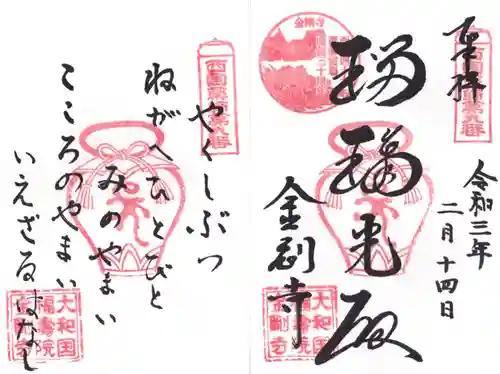 奉拝
西国薬師第九番
令和三年
二月十四日
瑠璃光殿
金剛寺
大和国
福寿院
金剛寺
西国薬師第九番
やくしぶつ
ねがへひとびと
みのやまい
こころのやまい
いえざるはなし
大和国
福寿院
金剛寺